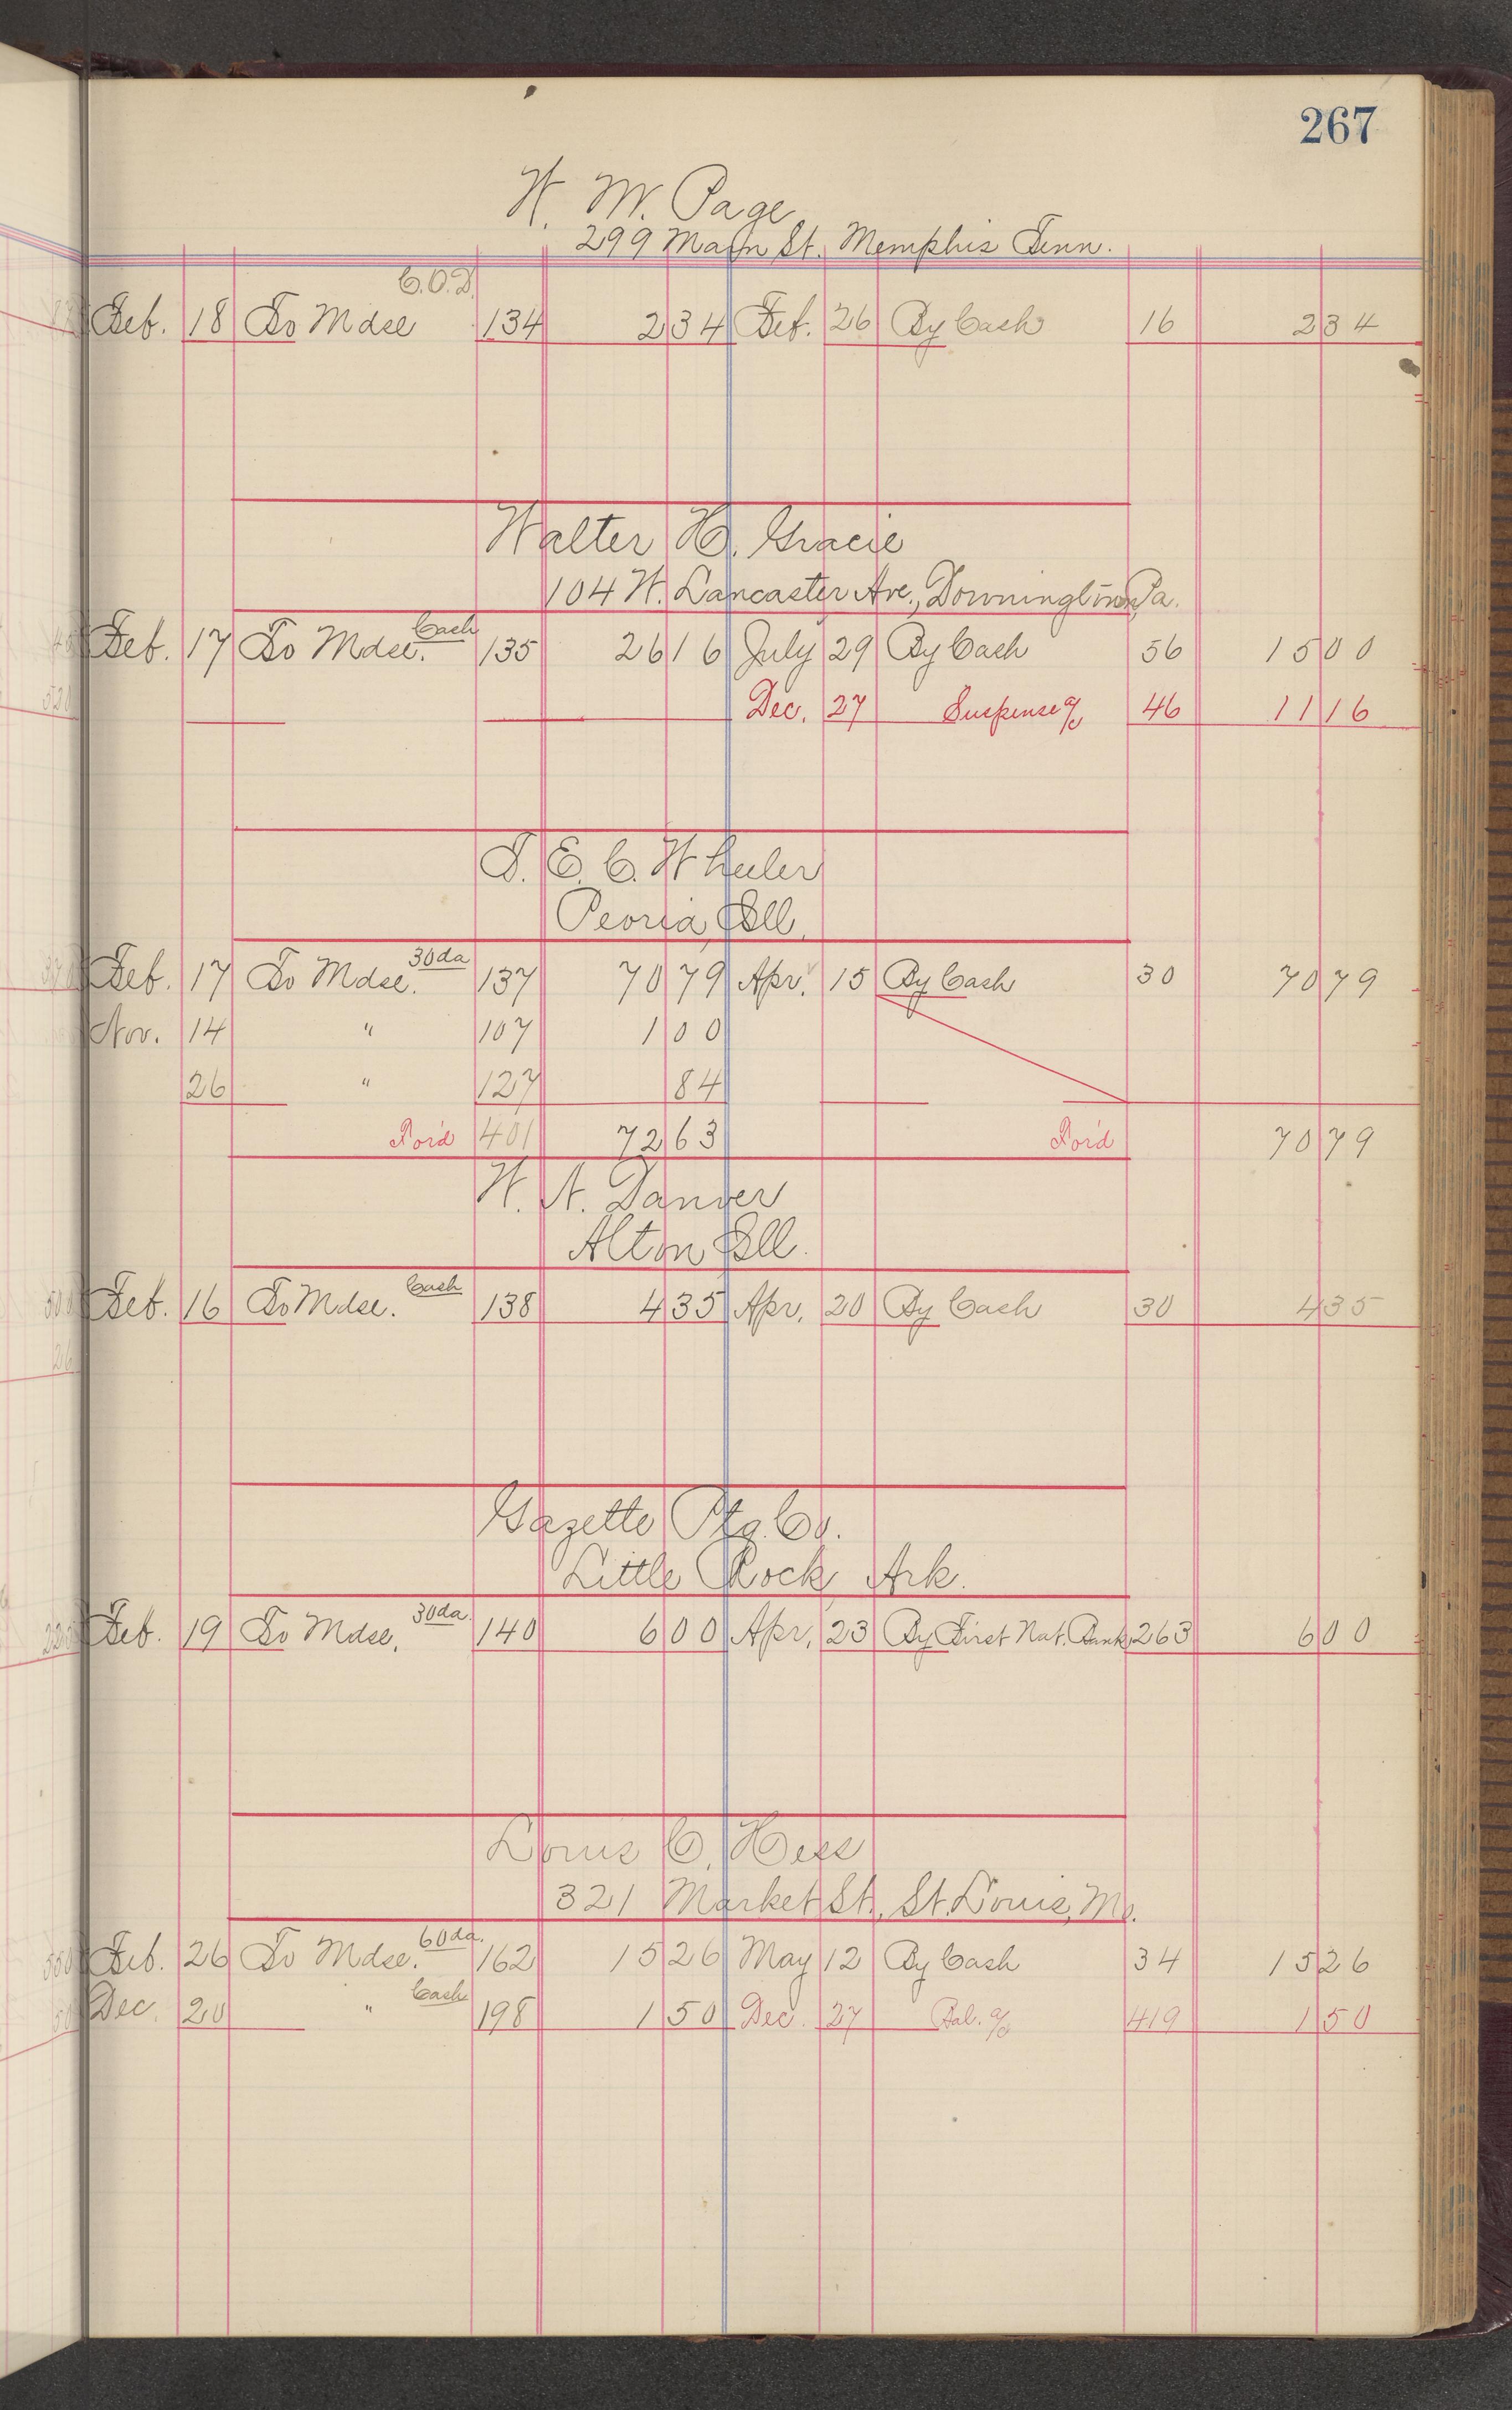 267
W. M. Page
299 Main St. Memphis Tenn.
C.O.D.
Feb. 18 To Mdse 134 2 34 Feb. 26 By Cash 16 2 34
Walter H. Gracie
104 W. Lancaster Ave., Downington, Pa.
Feb. 17 To Mdse. Cash 135 26 16 July 29 By Cash 56 15 00
Dec. 27 Suspense a/c 46 11 16
T. E. C. Wheeler
Peoria, Ill.
Feb. 17 To Mdse. 30da 137 70 79 Apr. 15 By Cash 30 70 79
Nov. 14 " 107 1 00
26 " 127 84
For'd 401 72 63 For'd 70 79
W. A. Danver
Alton Ill.
Feb. 16 To Mdse. Cash 138 4 35 Apr. 20 By Cash 30 4 35
Gazette Ptg. Co.
Little Rock, Ark.
Feb. 19 To Mdse. 30da. 140 6 00 Apr. 23 By First Nat. Bank 263 6 00
Louis C. Hess
321 Market St., St. Louis, Mo.
Feb. 26 To Mdse. 60da. 162 15 26 May 12 By Cash 34 15 26
Dec. 20 " Cash 198 1 50 Dec. 27 Bal. a/c 419 1 50